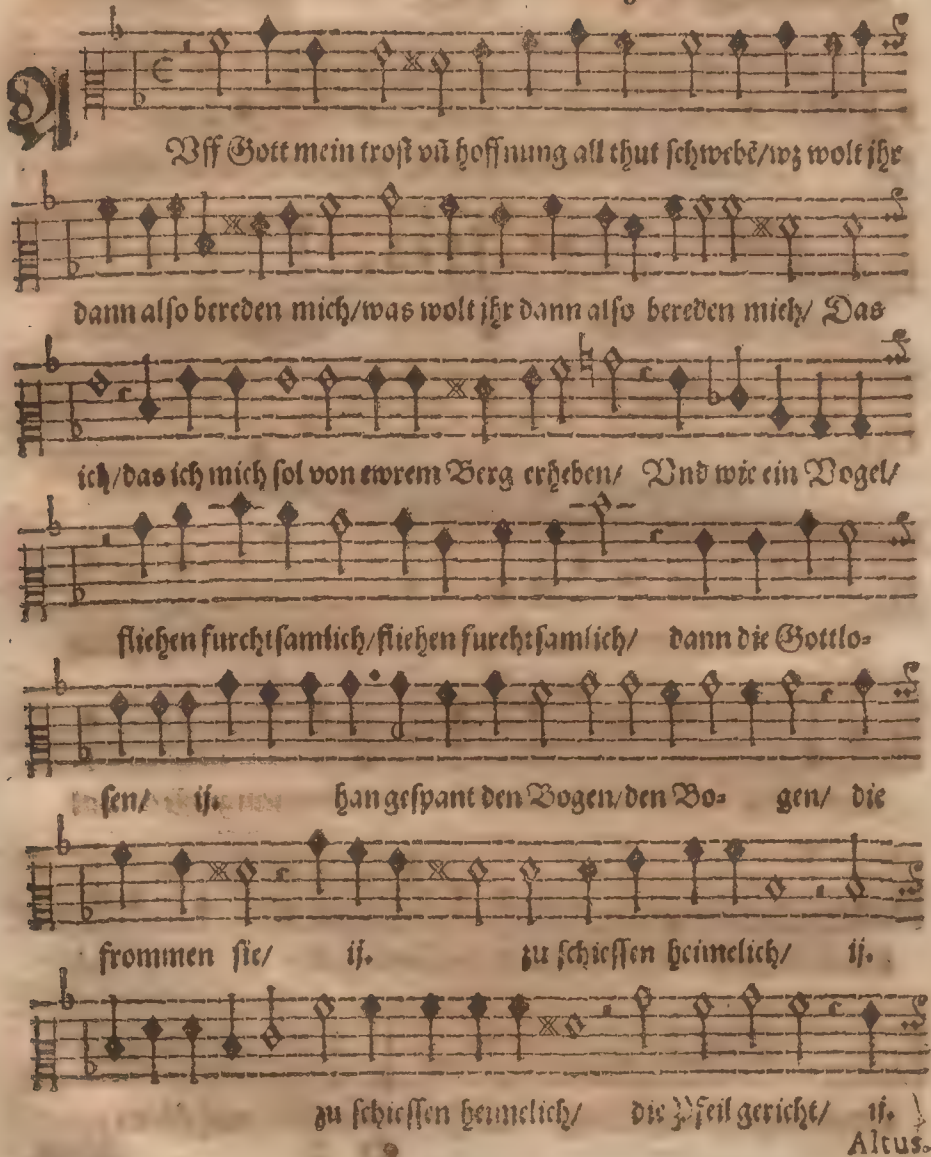 Vff Gott mein trost vñ hoffnung all thut schwebē/wz wolt jhr
dann also bereden mich/was wolt jhr dann also bereden mich/ Das
ich/das ich mich sol von ewrem Berg erheben/ Vnd wie ein Vogel/
fliehen furchtsamlich/fliehen furchtsamlich/ dann die Gottlo-
sen/ ij. han gespant den Bogen/den Bo- gen/ die
frommen sie/ ij. zu schiessen heimelich/ ij.
zu schiessen heimelich/ die Pfeil gericht/ ij.
Altus.